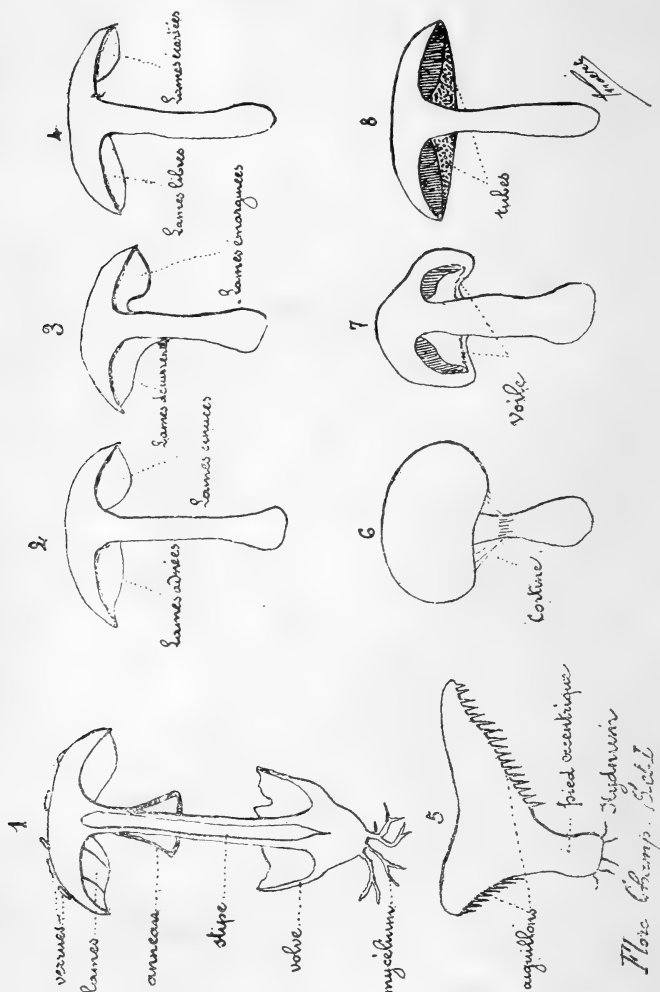 1
verrues
lames
anneau
stipe
volve
mycélium
2
Lames adnées
Lames sinuées
3
Lames décurrentes
Lames émarginées
4
Lames libres
Lames écartées
5
aiguillons
pied excentrique
Hydnum
6
Cortine
7
Voile
8
tubes
Flore Champ. Pl. I